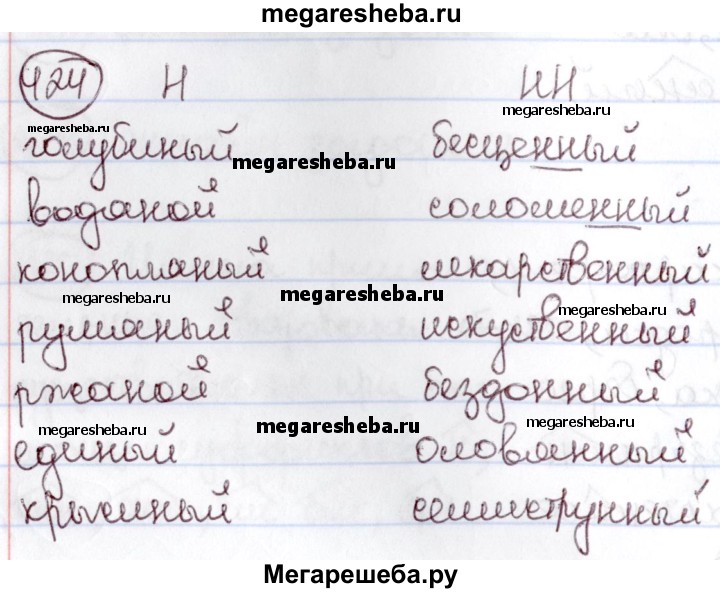 megaresheba.ru
424 Н НН
megaresheba.ru
megaresheba.ru
голубиный бесценный
megaresheba.ru
водяной соломенный
конопляный лекарственный
megaresheba.ru megaresheba.ru
megaresheba.ru
румяный искуственный
ржаной бездонный
megaresheba.ru megaresheba.ru megaresheba.ru
единый оловянный
крысиный семиструнный
Мегарешеба.ру